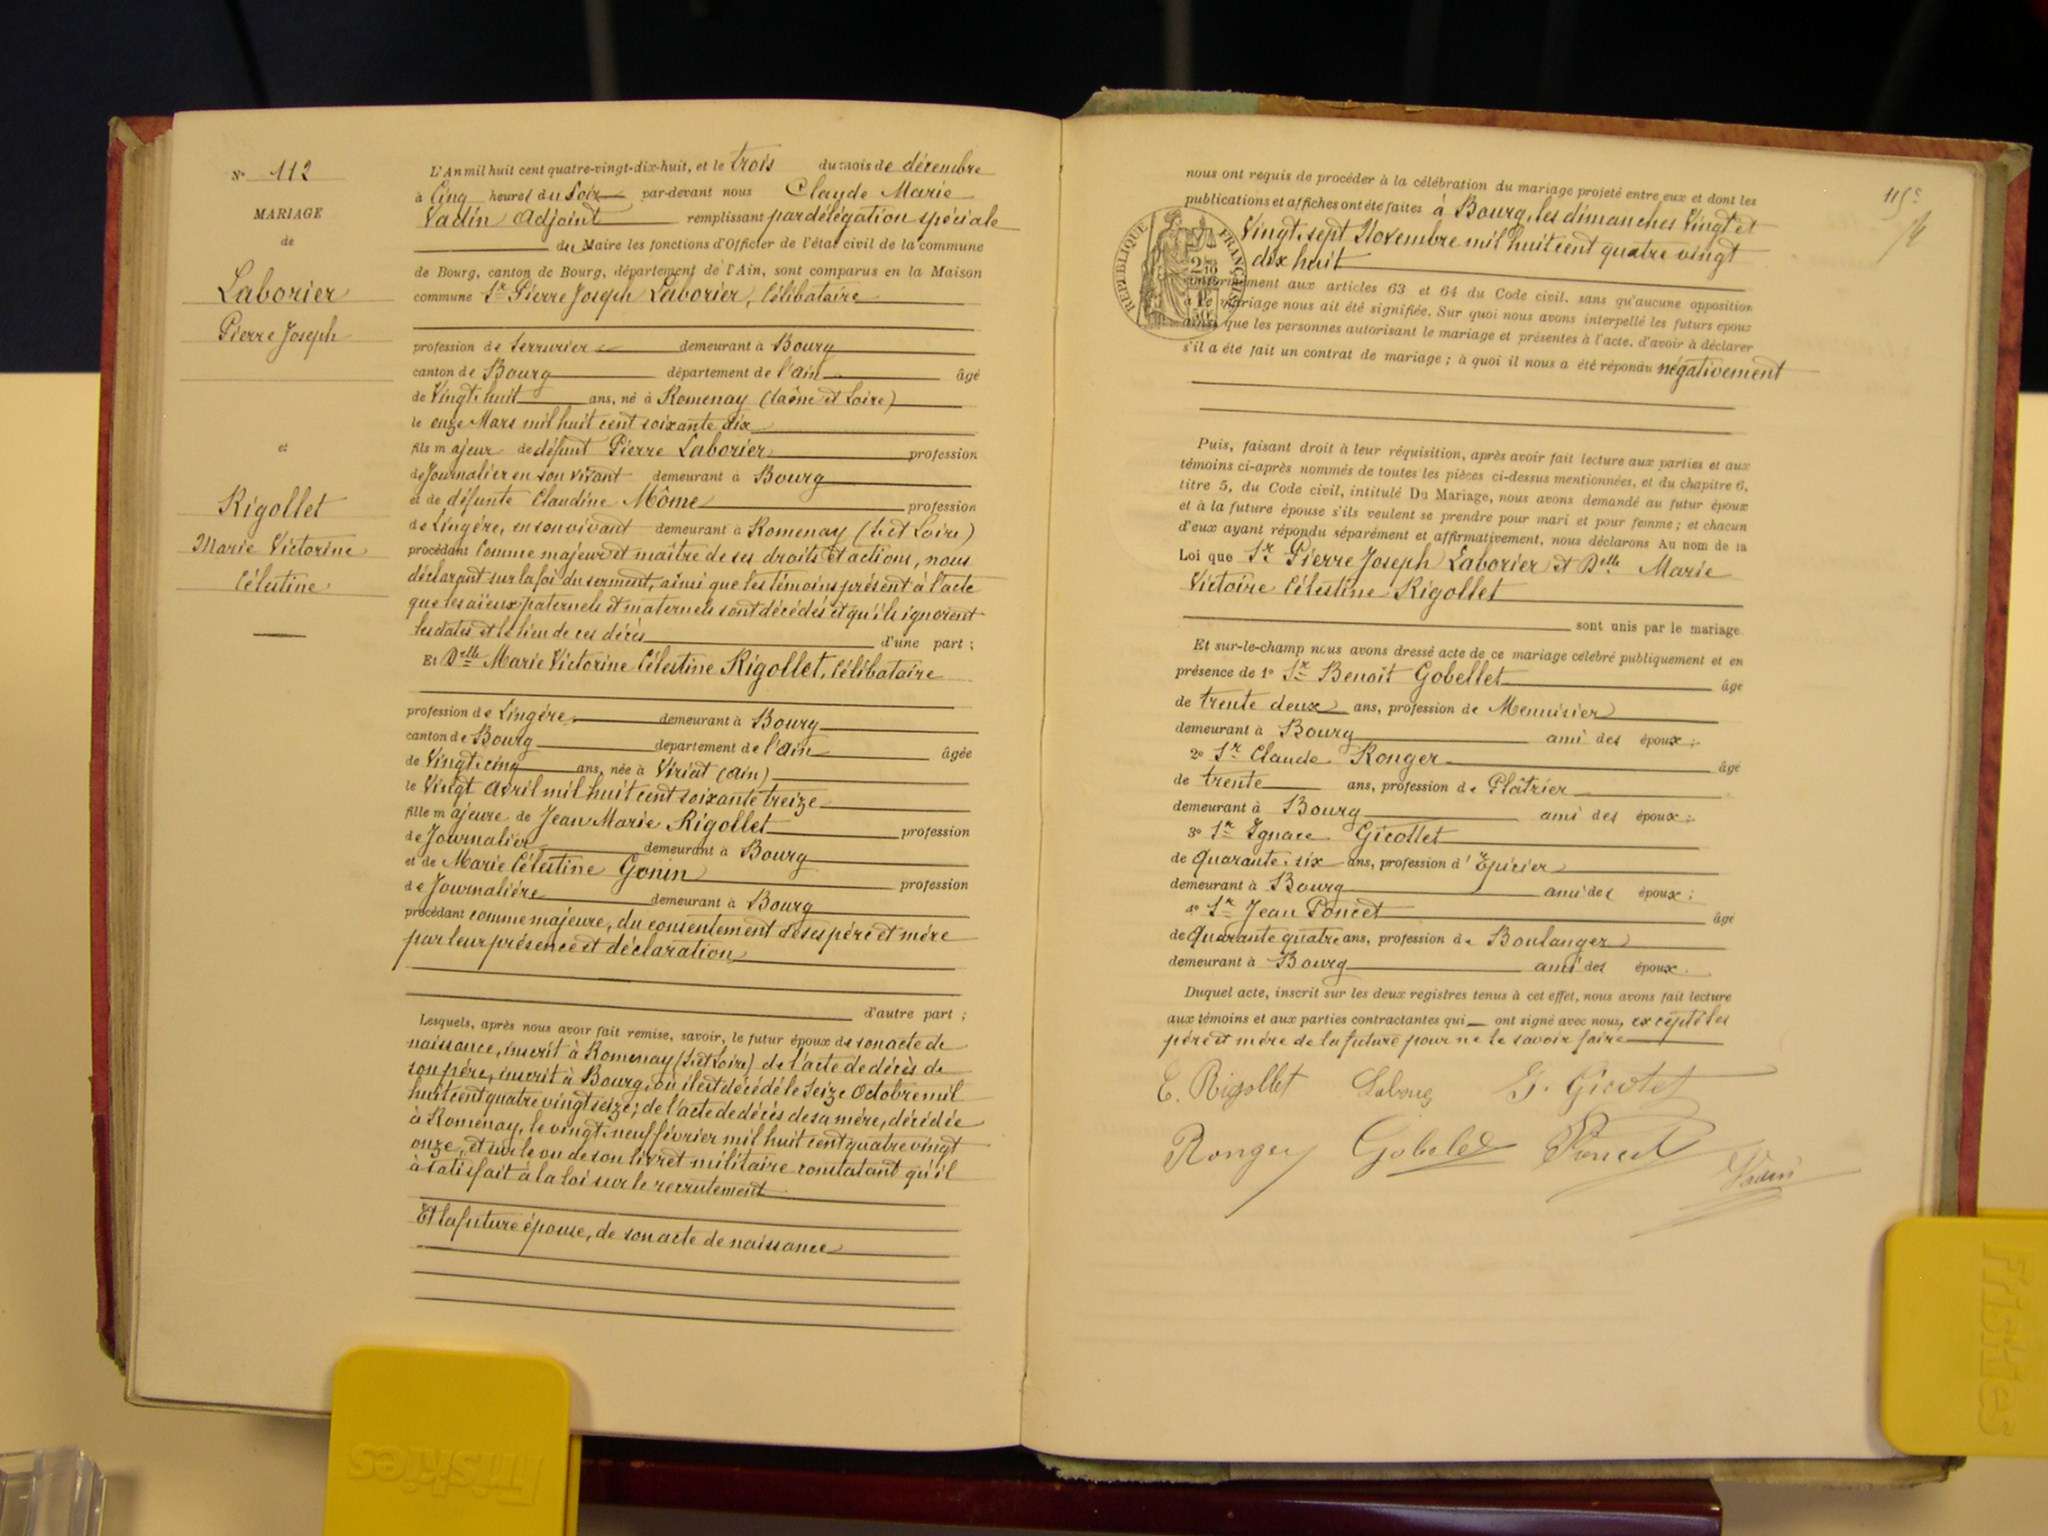 N° 112
MARIAGE
de
Laborier
Pierre Joseph
et
Rigollet
Marie Victorine
Célestine
L'An mil huit cent quatre-vingt-dix-huit, et le trois du mois de décembre
à Cinq heures du Soir par-devant nous Claude Marie
Vadin Adjoint remplissant par délégation spéciale
du Maire les fonctions d'Officier de l'état civil de la commune
de Bourg, canton de Bourg, département de l'Ain, sont comparus en la Maison
commune Sr Pierre Joseph Laborier, Célibataire
profession de Serrurier demeurant à Bourg
canton de Bourg département de l'Ain âgé
de Vingt-huit ans, né à Romenay (Saône et Loire)
le onze Mars mil huit cent soixante dix
fils majeur de défunt Pierre Laborier profession
de Journalier en son vivant demeurant à Bourg
et de défunte Claudine Môme profession
de Lingère, en son vivant demeurant à Romenay (S. et Loire)
procédant Comme majeur et maître de ses droits et actions, nous
déclarant sur la foi du serment, ainsi que les témoins présent à l'acte
que les aïeux paternels et maternels sont décédés et qu'ils ignorent
les dates et le lieu de ces décès d'une part ;
Et Delle Marie Victorine Célestine Rigollet, Célibataire
profession de Lingère demeurant à Bourg
canton de Bourg département de l'Ain âgée
de Vingt-cinq ans, née à Viriat (Ain)
le Vingt Avril mil huit cent soixante treize
fille majeure de Jean Marie Rigollet profession
de Journalier demeurant à Bourg
et de Marie Célestine Gonin profession
de Journalière demeurant à Bourg
procédant comme majeure, du consentement de ses père et mère
par leur présence et déclaration
d'autre part ;
Lesquels, après nous avoir fait remise, savoir, le futur époux de son acte de
naissance, inscrit à Romenay (S. et Loire) de l'acte de décès de
son père, inscrit à Bourg, où il est décédé le Seize Octobre mil
huit cent quatre vingt seize ; de l'acte de décès de sa mère, décédée
à Romenay, le vingt-neuf février mil huit cent quatre vingt
onze, et sur le vu de son livret militaire constatant qu'il
à satisfait à la loi sur le recrutement
Et la future épouse, de son acte de naissance
115e
nous ont requis de procéder à la célébration du mariage projeté entre eux et dont les
publications et affiches ont été faites à Bourg, les dimanches Vingt et
Vingt-sept Novembre mil huit cent quatre vingt
dix huit
RÉPUBLIQUE FRANÇAISE
conformément aux articles 63 et 64 du Code civil, sans qu'aucune opposition
à ce mariage nous ait été signifiée. Sur quoi nous avons interpellé les futurs époux
ainsi que les personnes autorisant le mariage et présentes à l'acte, d'avoir à déclarer
s'il a été fait un contrat de mariage ; à quoi il nous a été répondu négativement
Puis, faisant droit à leur réquisition, après avoir fait lecture aux parties et aux
témoins ci-après nommés de toutes les pièces ci-dessus mentionnées, et du chapitre 6,
titre 5, du Code civil, intitulé Du Mariage, nous avons demandé au futur époux
et à la future épouse s'ils veulent se prendre pour mari et pour femme ; et chacun
d'eux ayant répondu séparément et affirmativement, nous déclarons Au nom de la
Loi que Sr Pierre Joseph Laborier et Delle Marie
Victoire Célestine Rigollet
sont unis par le mariage
Et sur-le-champ nous avons dressé acte de ce mariage célébré publiquement et en
présence de 1° Sr Benoît Gobellet âgé
de trente deux ans, profession de Menuisier
demeurant à Bourg ami des époux ;
2° Sr Claude Ronger âgé
de trente ans, profession de Plâtrier
demeurant à Bourg ami des époux ;
3° Sr Ignace Gicollet
de Quarante-six ans, profession d'Épicier
demeurant à Bourg ami des époux ;
4° Sr Jean Poncet âgé
de Quarante quatre ans, profession de Boulanger
demeurant à Bourg ami des époux.
Duquel acte, inscrit sur les deux registres tenus à cet effet, nous avons fait lecture
aux témoins et aux parties contractantes qui ont signé avec nous, excepté les
père et mère de la future pour ne le savoir faire
E. Rigollet Laborier G. Gicotet
Ronger Gobelet Poncet Vadin
Friskies
Friskies